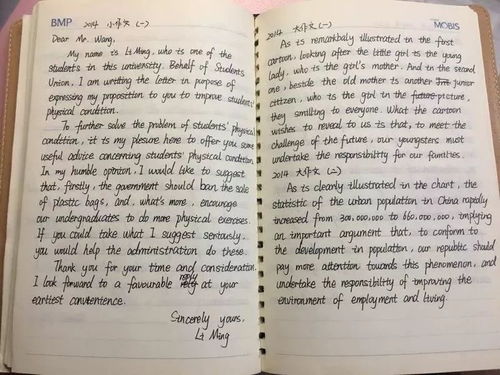 BMP
2014 小作文 (一)
Dear Mr. Wang,
My name is Li Ming, who is one of the
students in this university. Behalf of Students
Union, I am writing the letter in purpose of
expressing my proposition to you to improve students'
physical condition.
To further solve the problem of students' physical
condition, it is my plesure here to offer you some
useful advice concerning students' physical condition.
In my humble opinion, I would like to suggest
that, firstly, the government should ban the sale
of plastic bags, and, what's more, encourge
our undergraduates to do more physical exercises.
If you could take what I suggest seriously,
you would help the administration do these.
Thank you for your time and consideration.
I look forward to a favourable reply at your
earliest convenience.
Sincerely yours,
Li Ming
MOBIS
2014 大作文 (一)
As is remarkbaly illustrated in the first
cartoon, looking after the little girl is the young
lady, who is the girl's mother. And in the second
one, beside the old mother is another junior
citizen, who is the girl in the picture,
they smilling to everyone. What the cartoon
wishes to reveal to us is that, to meet the
challenge of the future, our youngsters must
undertake the responsibility for our families.
2014 大作文 (二)
As is clearly illustrated in the chart, the
statistic of the urban population in China rapidly
increased from 300,000,000 to 660,000,000, implying
an important argument that, to conform to
the development in population, our republic should
pay more attention towards this phenomenon, and
undertake the responsibility of improving the
environment of employment and living.